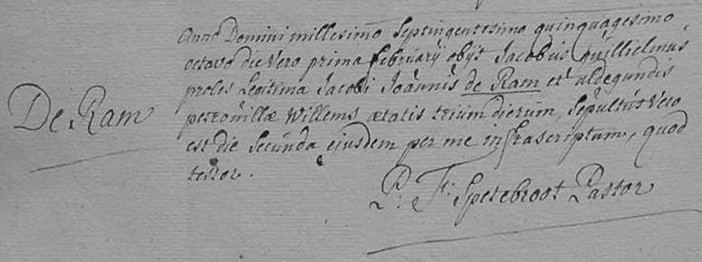 Anno Domini millesimo Septingentesimo quinquagesimo
octavo die Vero prima februarij obijt Jacobus guillielmus
proles Legitima Jacobi Joannis de Ram et aldegundis
petronillæ Willems ætatis trium dierum, Sepultus Vero
De Ram
est die Secunda ejusdem per me infrascriptum, quod
testor.
P: F: Spetebroot Pastor